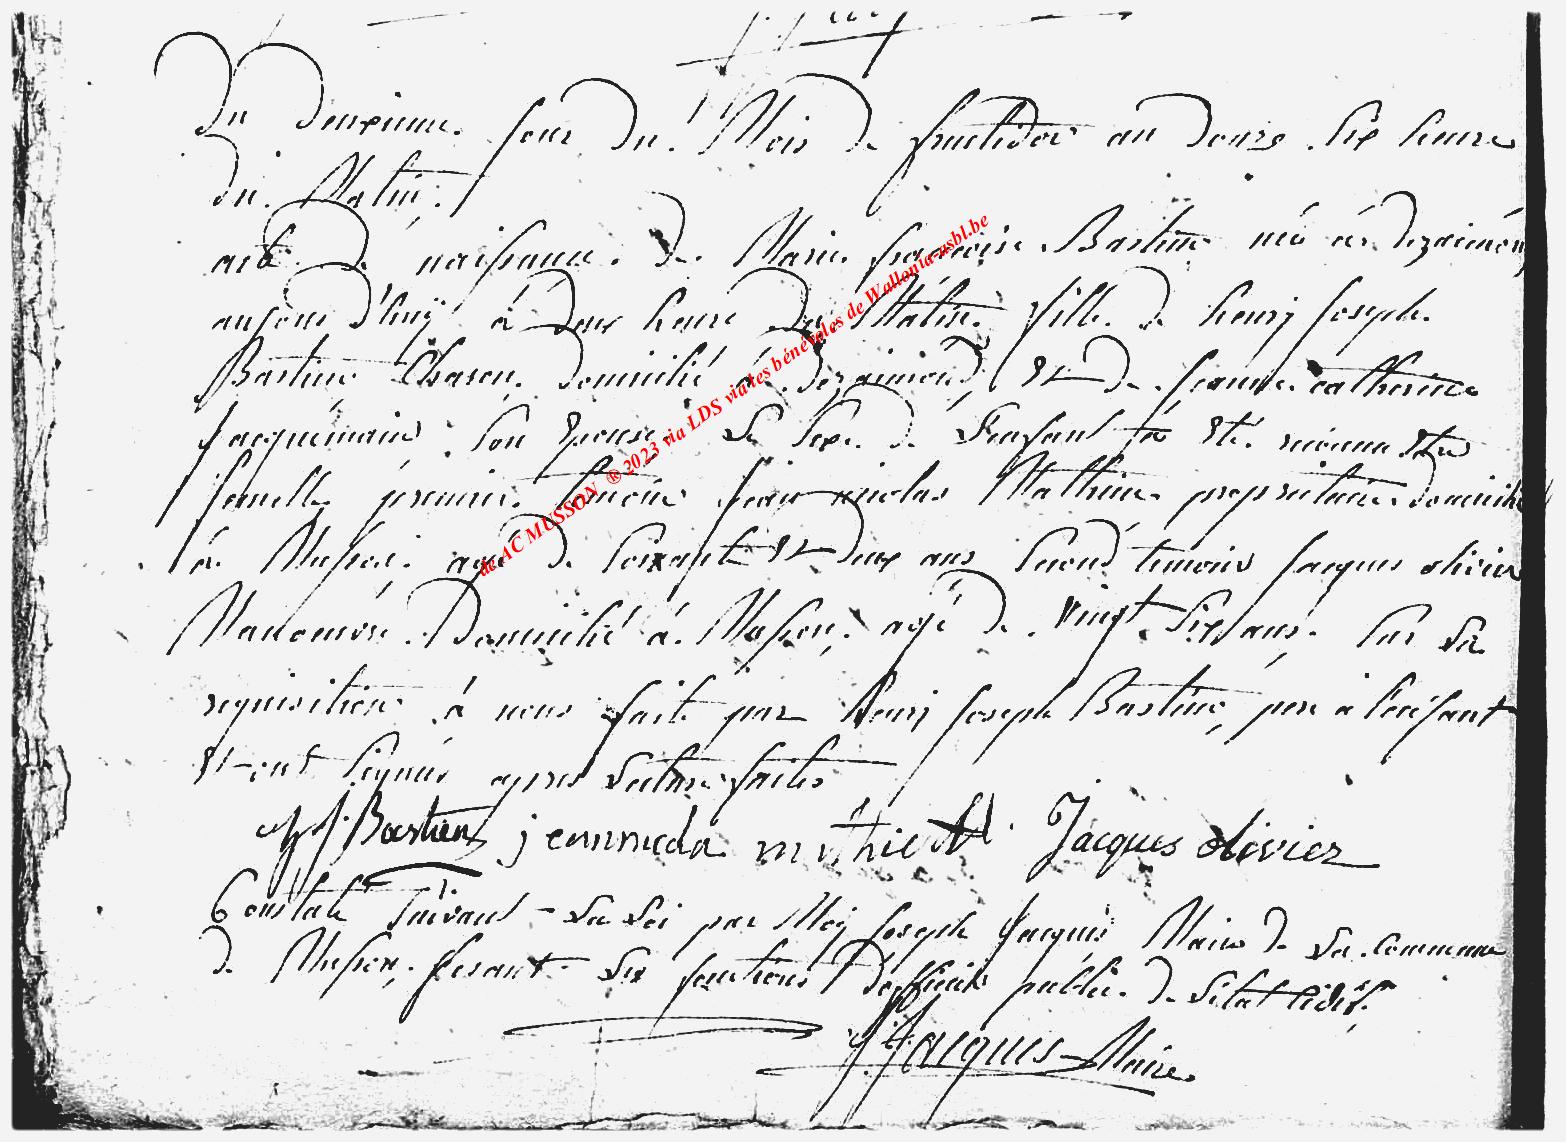 Du deuxieme jour du Mois de fructidor an douze six heure
du Matin.
acte de naissance de Marie françoise Bastine né a
aujourd'huÿ à deux heure du Matin fille de henrÿ joseph
Bastine domicilié à et de jeanne catherine
jacquemain son Epouse Le sexe de L'enfant a Eté reconnu Etre
femelle premier temoin jean nicolas Mathieu proprietaire domicilié
à Musson agé de soixant et deux ans second temoins jacques olivier
domicilié à Musson, agé de vingt six ans. sur La
requisition à nous fait par henrÿ joseph Bastine, pere a l'enfant
Et ont signés apres Lecture faites
H J. Bastien Jacques olivier
Constaté suivant La Loi par Moÿ joseph jacques Maire de La commune
de Musson, fesant Les fonctions d'officier public de L'état Civil.
J. Jacques Maire
de AC MUSSON ® 2023 via LDS via les bénévoles de Wallonia-asbl.be